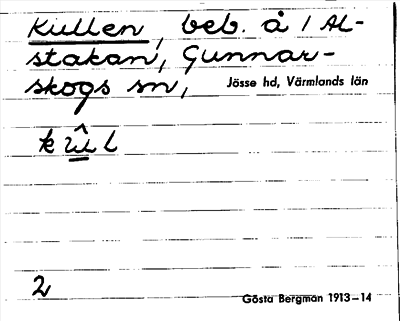 Kullen, beb. å 1 Al-
stakan, Gunnar-
skogs sn, Jösse hd, Värmlands län
kûl
2
Gösta Bergman 1913–14